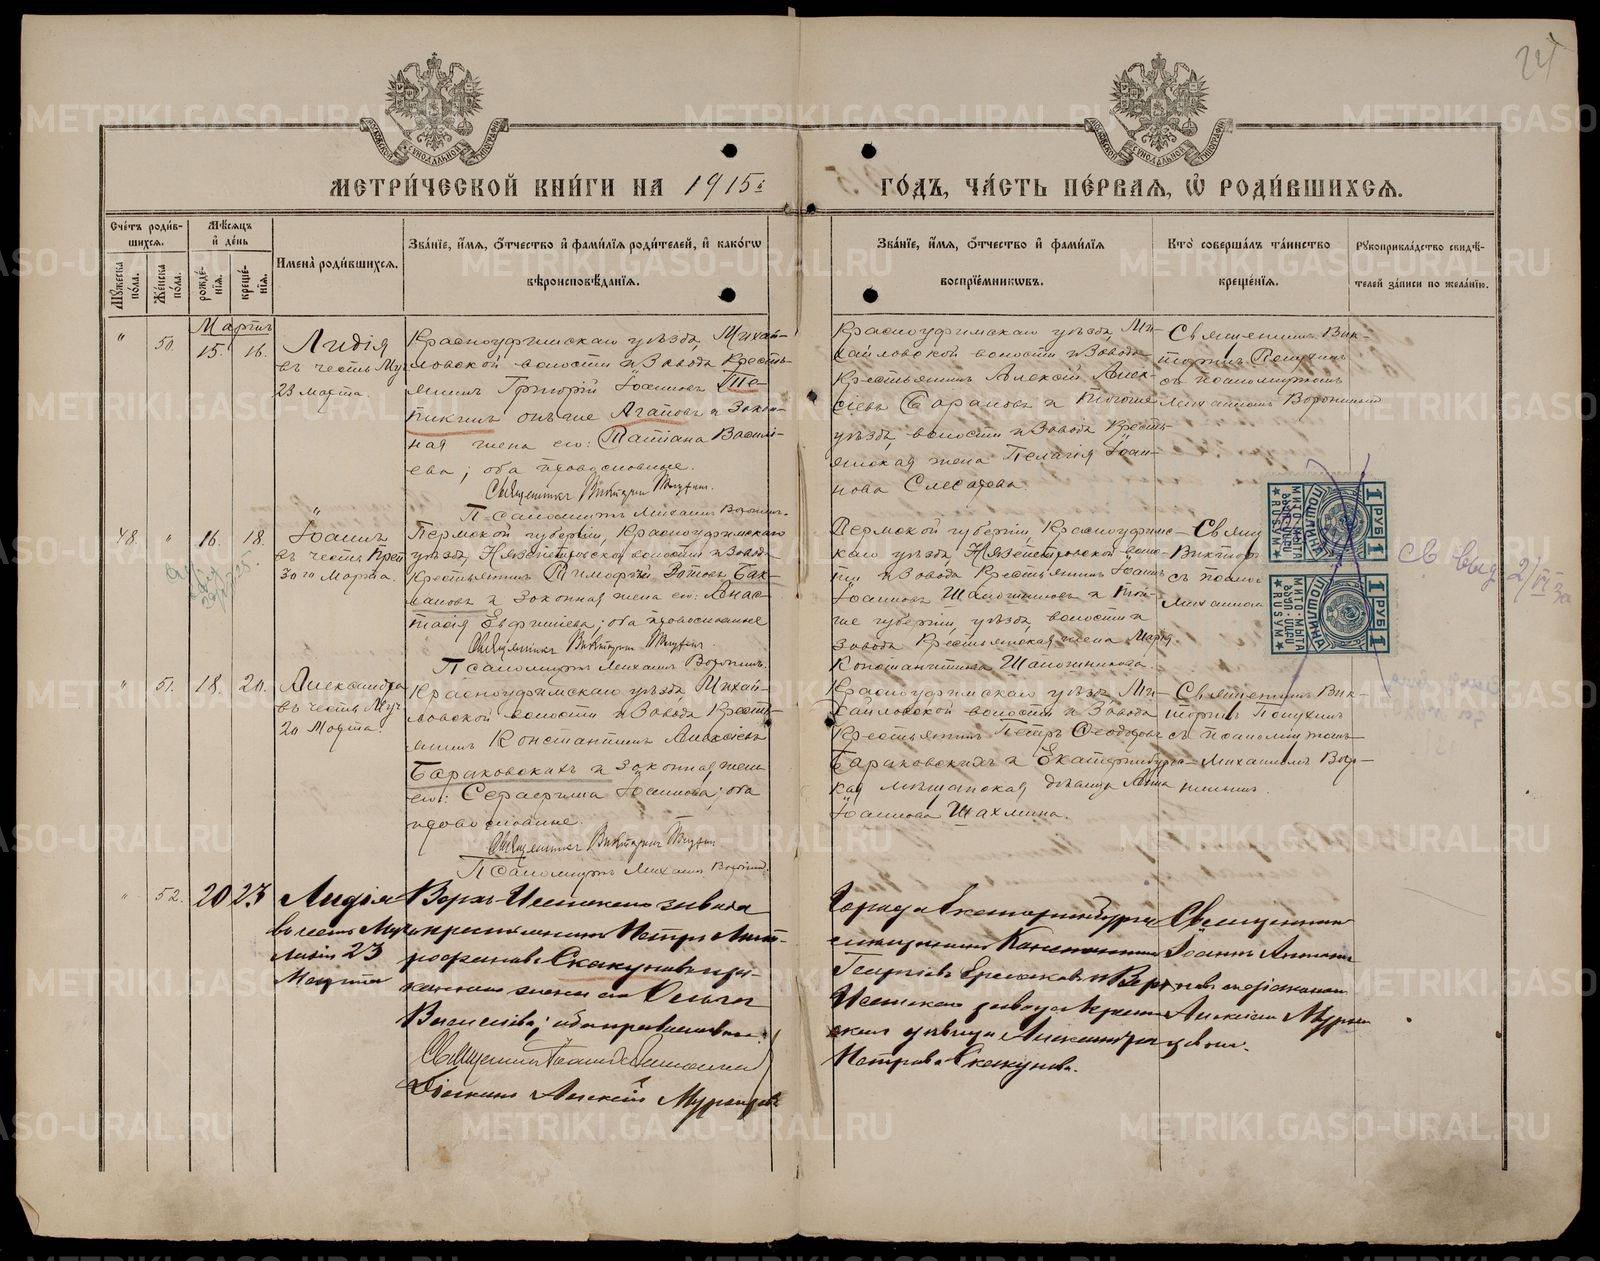 24
МЕТРИ́ЧЕСКОЙ КНИ́ГИ НА 1915й
ГО́ДЪ, ЧА́СТЬ ПЕ́РВАѦ, Ѡ҆ РОДИ́ВШИХСѦ.
Сче́тъ роди́в-
шихсѧ.
Мꙋ́жеска по́ла.
Же́нска по́ла.
Мѣ́сѧцъ
и҆ де́нь
рожде́-
нїѧ.
креще́-
нїѧ.
И҆мена̀ роди́вшихсѧ.
Зва́нїе, и҆́мѧ, ѻ҆́тчество и҆ фами́лїѧ роди́телей, и҆ како́гѡ
вѣроисповѣ́данїѧ.
Зва́нїе, и҆́мѧ, ѻ҆́тчество и҆ фами́лїѧ
воспрїе́мникѡвъ.
Кто̀ соверша́лъ та́инство
креще́нїѧ.
Рꙋкоприкла́дство свидѣ́-
телей за́писи по жела́нїю.
Мартъ
" 50. 15. 16.
Лидія
въ честь Му.
23 марта.
Красноуфимскаго уѣзда, Михай-
ловской волости и Завода Кресть-
янинъ Григорій Іоанновъ Пе-
онъ же Агаповъ и Закон-
ная жена его: Татіана Василі-
ева; оба православные.
Священникъ Викторинъ
Псаломщикъ Михаилъ Воронинъ.
Красноуфимскаго уѣзда, Ми-
хайловской волости и Завода
Крестьянинъ Алексій Алек-
сіевъ Барановъ и тогоже
уѣзда, волости и Завода Кресть-
янская жена Пелагія Іоан-
нова Слесарева.
Священникъ Вик-
торинъ
съ псаломщикомъ
Михаиломъ Воронинымъ
48. " 16. 18.
Іоаннъ
въ честь Преп.
30го Марта.
Пермской губерніи, Красноуфимскаго
уѣзда, Нязепетровской волости и Завода
Крестьянинъ Тимофей Зотовъ Бак-
лановъ и Законная жена его: Анас-
тасія Евфиміева; оба православные
Священникъ Викторинъ
Псаломщикъ Михаилъ Воронинъ.
Пермской губерніи, Красноуфимс-
каго уѣзда, Нязепетровской воло-
сти и Завода Крестьянинъ Іоаннъ
Іоанновъ Шапошниковъ и той-
же губерніи, уѣзда, волости и
Завода Крестьянская жена Марія
Константинова Шапошникова.
Свящ
Виктор
съ псало
Михаилом
1 РУБ 1
ПОШЛИНА
МИТО • МЫТА
RUSUM
1 РУБ 1
ПОШЛИНА
МИТО • МЫТА
RUSUM
св выд 2/VI
" 51. 18. 20.
Александра
въ честь Муч.
20 Марта.
Красноуфимскаго уѣзда Михай-
ловской волости и Завода Кресть-
янинъ Константинъ Алексіевъ
Бараковскихъ и Законная жена
его: Серафима Іоаннова; оба
православные.
Священникъ Викторинъ
Псаломщикъ Михаилъ Воронинъ.
Красноуфимскаго уѣзда Ми-
хайловской волости и Завода
Крестьянинъ Петръ Ѳеодоровъ
Бараковскихъ и Екатеринбургс-
кая мѣщанская дѣвица Анна
Іоаннова Шахмина.
Священникъ Вик-
торинъ
съ псаломщикомъ
Михаиломъ Воро-
нинымъ.
" 52. 20 23
Лидія
въ честь Муч.
Лидіи 23
Марта
Верхъ-Исетскаго завода
крестьянинъ Петръ Мит-
рофановъ Скакуновъ и за-
конная жена его Ольга
Васильева; оба православные.
Священникъ Іоаннъ
Діаконъ Алексій
Города Екатеринбурга
мѣщанинъ Константинъ
Георгіевъ и Верх-
Исетскаго завода Кресть-
янская дѣвица Александра
Петрова Скакунова.
Священникъ
Іоаннъ
съ діакономъ
Алексіемъ
METRIKI.GASO-URAL.RU